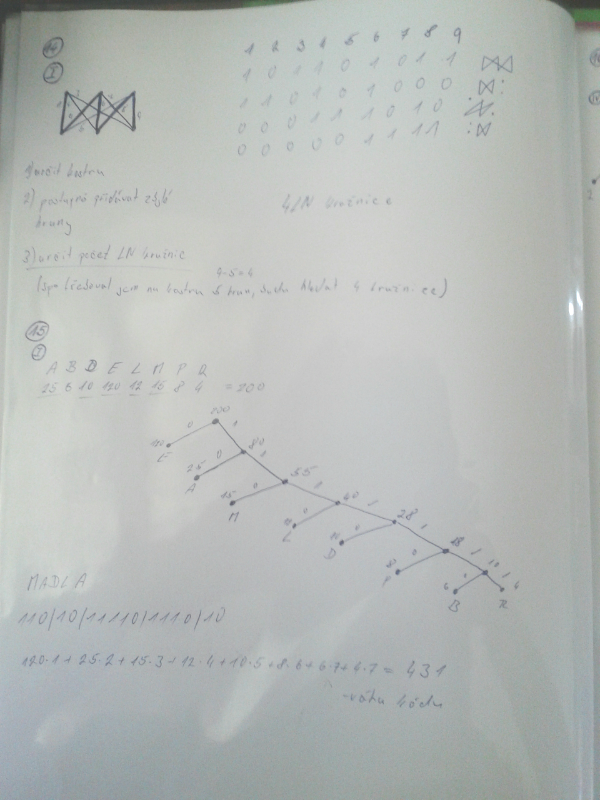 14
I
1 2 3 4 5 6 7 8 9
1 0 1 1 0 1 0 1 1
1 1 0 1 0 1 0 0 0
0 0 0 1 1 1 0 1 0
0 0 0 0 0 1 1 1 1
1) určit kostru
2) postupně přidávat
hrany
4 LN kružnice
3) určit počet LN kružnic
9-5=4
kostru 5 hran, hledat 4 kružnice)
15
I
A B D E L M P R
25 6 10 120 12 15 8 4 = 200
200
0 1
120
E
80
0 1
25
A
55
0 1
15
M
40
0 1
L
28
0 1
D
18
0 1
P
10
0 1
6
B
4
R
MADLA
110|10|11110|1110|10
120·1+25·2+15·3+12·4+10·5+8·6+6·7+4·7= 431
-váha kódu